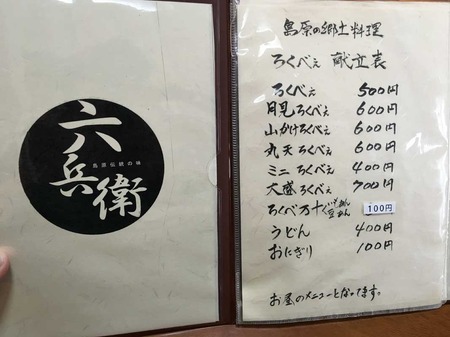 六兵衛
島原伝統の味
島原の郷土料理
ろくべぇ 献立表
ろくべぇ 500円
月見ろくべぇ 600円
山かけろくべぇ 600円
丸天ろくべぇ 600円
ミニろくべぇ 400円
大盛ろくべぇ 700円
ろくべ万十 100円
うどん 400円
おにぎり 100円
お昼のメニューとなってます。